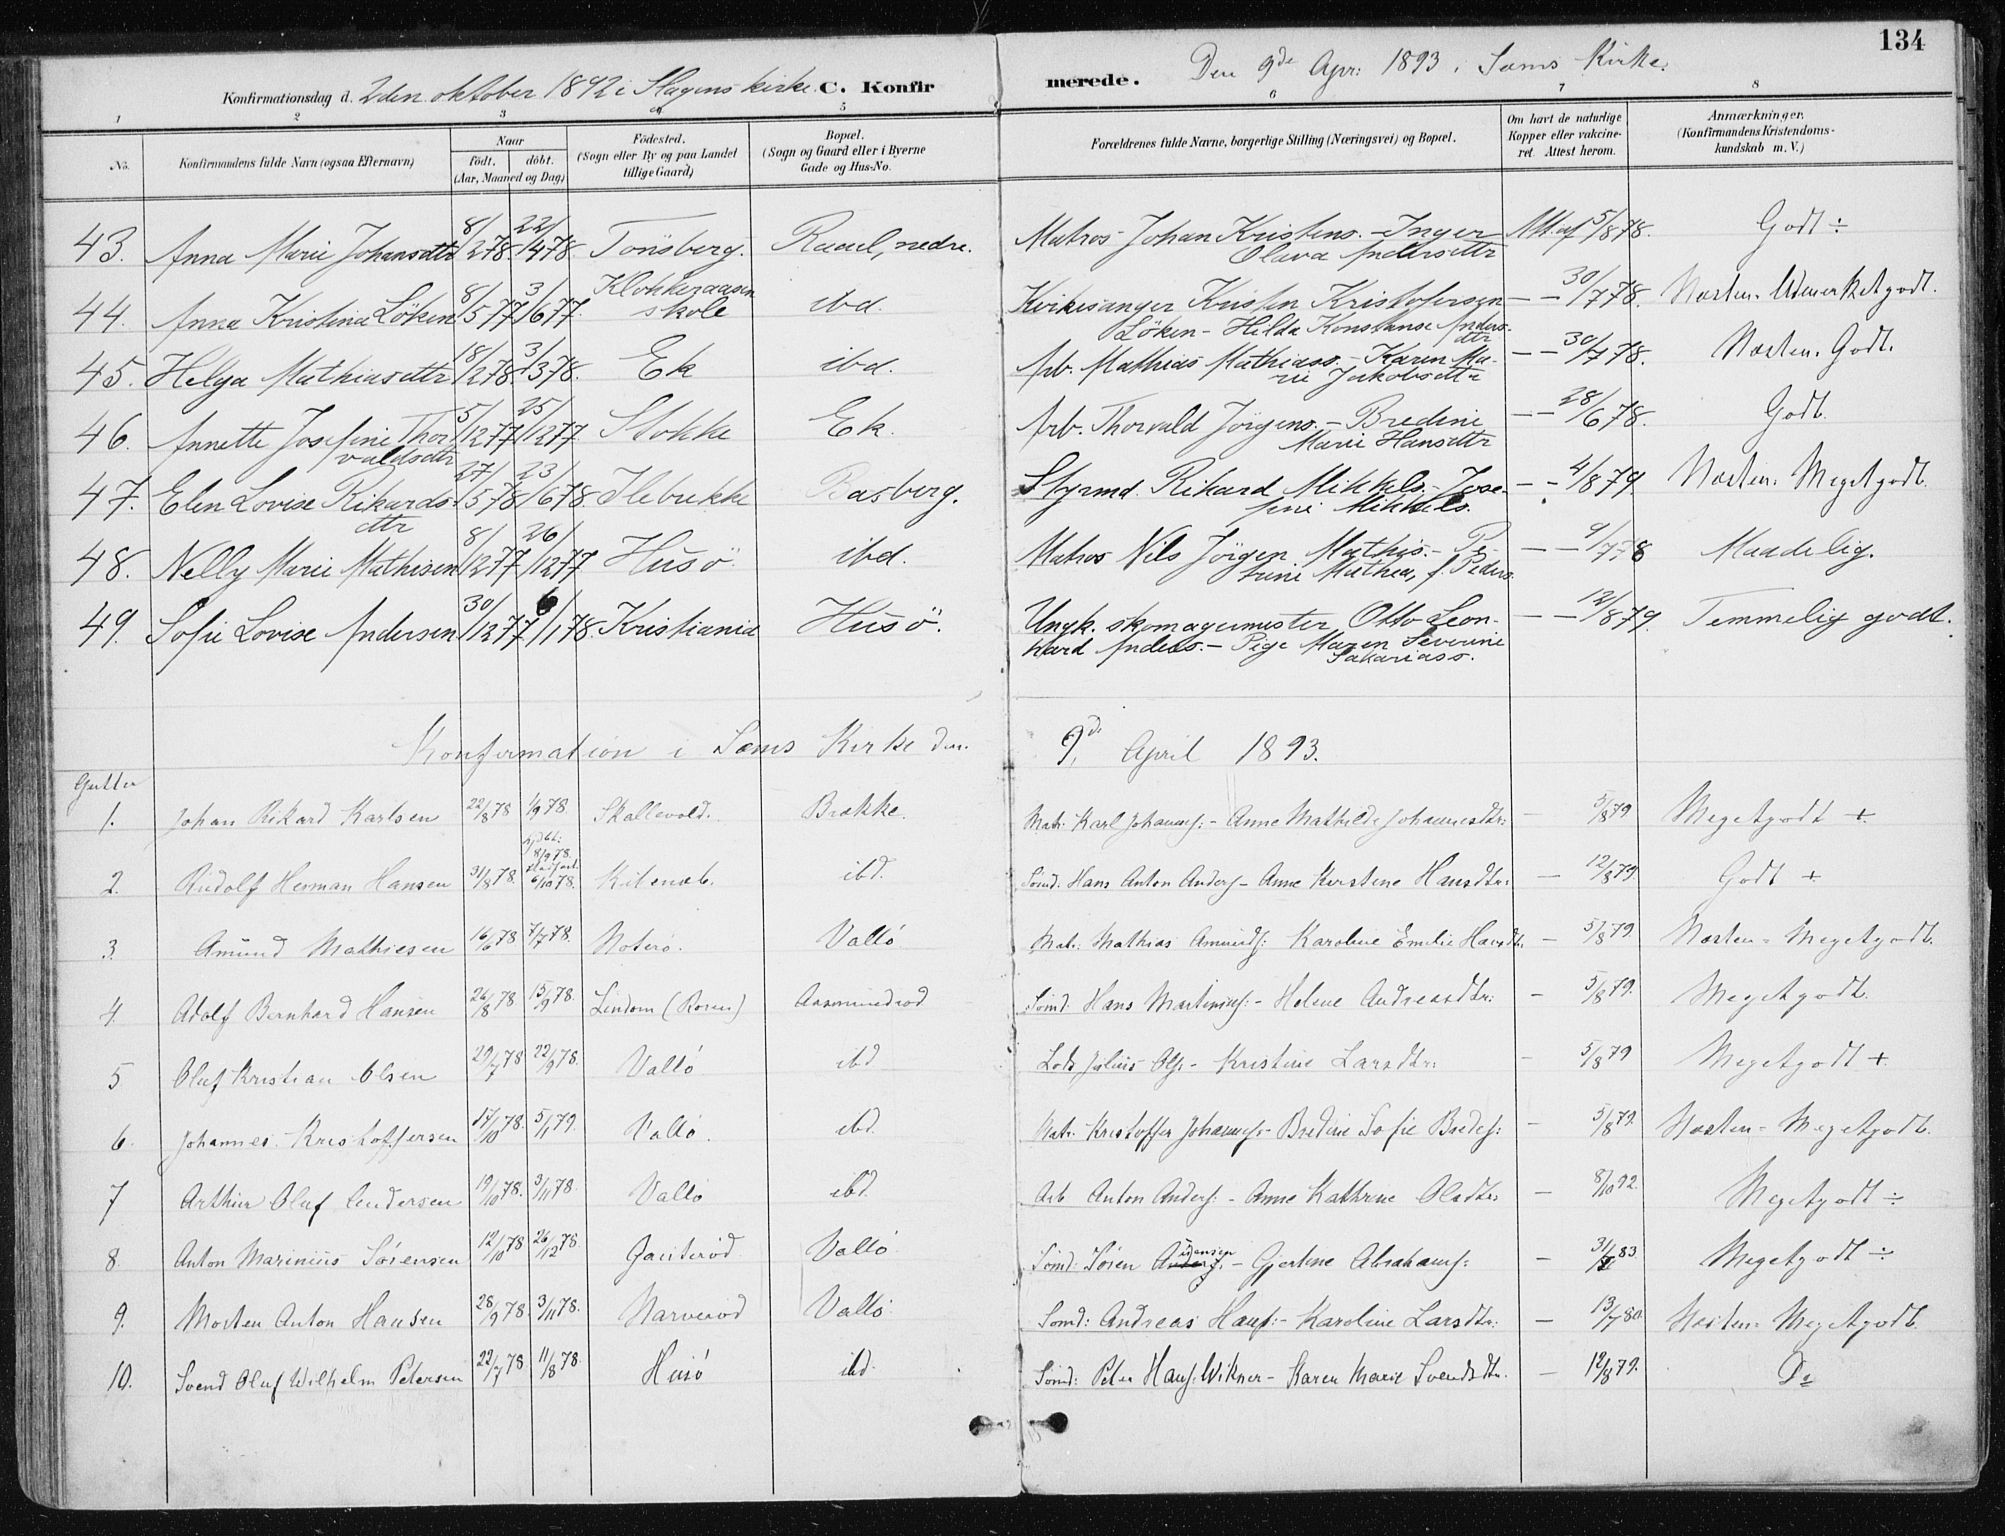 134
Konfirmationsdag d. 2den oktober 1892 i Slagens kirke. C. Konfirmerede. Den 9de Apr: 1893 i Sæms Kirke.
1 2 3 4 5 6 7 8
No. Konfirmandens fulde Navn (ogsaa Efternavn) Naar født. døbt. (Aar, Maaned og Dag) Fødested. (Sogn eller By og paa Landet tillige Gaard) Bopæl. (Sogn og Gaard eller i Byerne Gade og Hus-No. Forældrenes fulde Navne, borgerlige Stilling (Næringsvei) og Bopæl. Om havt de naturlige Kopper eller vakcineret. Attest herom. Anmærkninger. (Konfirmandens Kristendomskundskab m. V.)
43. Anna Marie Johansdttr 8/278. 22/478. Tønsberg. Raael, nedre. Matros Johan Kristens. - Inger Olava Andersdttr Att af 5/878. Godt ÷
44. Anna Kristina Løken 8/577 3/677. Klokkeraasen skole ibd. Kirkesanger Kristen Kristofersen Løken - Hilda Konstanse Andersdttr — — 30/778. Næsten Udmerketgodt.
45. Helga Mathiasdttr 18/278. 3/378. Ek ibd. Arb. Mathias Mathiass. - Karen Marie Jakobsdttr — — 30/778. Næsten Godt.
46. Annette Josefine Thorvaldsdttr 5/1277 25/1277 Stokke Ek. Arb. Thorvald Jørgens. - Bredine Marie Hansdttr — — 28/678. Godt.
47. Elen Lovise Rikardsdttr 27/578 23/678. Ilebrekke Basberg. Styrmd. Rikard Mikkels. - Josefine Mikkels. — — 4/879. Næsten Megetgodt.
48. Nelly Marie Mathisen 8/1277 26/1277 Husø. ibd. Matros Nils Jørgen Mathis. - Petrine Mathea, f. Peders. — — 9/778 Maadelig.
49. Sofie Lovise Andersen 30/1277 6/178. Kristiania Husø. Ungk. skomagermester Otto Leonhard Anders. - Pige Maren Severine Sakariass. — — 12/879. Temmelig godt.
Konfirmation i Sæms Kirke den 9de April 1893.
Gutter
1. Johan Rikard Karlsen 22/878 1/978. Skallevold. Brække. Matr. Karl Johannes: - Anne Mathilde Johannesdtr: — 5/879 Megetgodt +
2. Rudolf Herman Hansen 31/878. hjdbt: 8/978. 6/1078. Kilenæb. ibd. Sømd. Hans Anton Anders - Anne Kirstine Hansdtr: — 12/879 Godt +
3. Amund Mathiesen 16/678 7/778. Nøterø. Vallø Matr. Mathias Amunds: Karoline Emilie Hansdtr. — 5/879 Næsten Megetgodt.
4. Adolf Bernhard Hansen 26/878. 15/978. Lindom (Roren) Aasmundrød Sømd. Hans Martinius: - Helene Andreasdtr: — 5/879. Megetgodt.
5 Oluf Kristian Olsen 29/778 22/978. Vallø ibd Lods Julius Ols. - Kristine Larsdtr: — 5/879 Megetgodt +
6. Johannes Kristoffersen 17/1078. 5/179. Vallø. ibd. Matr. Kristoffer Johannes: - Bredine Sofie Bredes: — 5/879. Næsten Megetgodt.
7 Arthur Oluf Andersen 19/1078. 3/1178. Vallø ibd. Arb Anton Anders: - Anne Kathrine Olsdtr: — 8/1092. Megetgodt ÷
8. Anton Marinius Sørensen 12/1078 26/1278. Gauterød Vallø Sømd: Søren Anders: - Gjertine Abrahams: — 31/ 83 Megetgodt ÷
9. Morten Anton Hansen 28/978. 3/1178. Narverød Vallø Sømd: Andreas Hans: - Karoline Larsdtr: — 13/780. Næsten Megetgodt.
10. Svend Oluf Wilhelm Petersen 22/778 11/878. Husø ibd. Sømd: Peter Hans: Wikner - Karen Marie Svendsdtr. — 12/879. Do